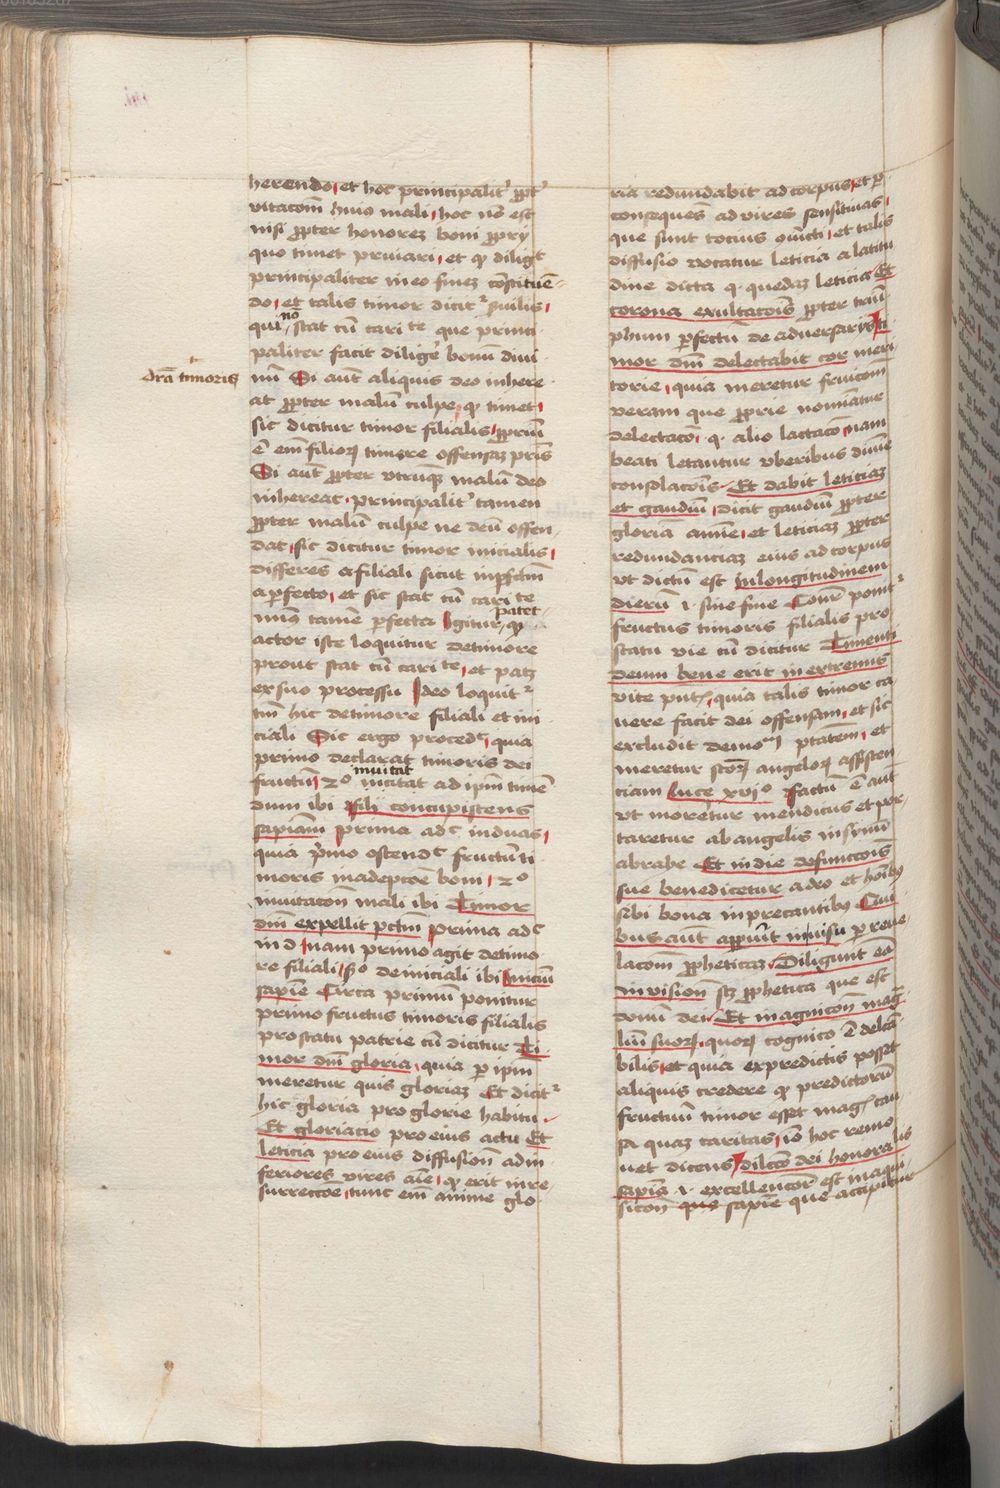 herendo et hoc principalit' ppt'
vitacōm huiꝰ mali hoc nō est
nisi ꝓpter honorez boni ꝓpry
quo timet priuari et qꝫ diligit
principaliter in eo finez cōstituē-
do et talis timor dicit̉ s̉uilis
qui no stat cū cari te que princi
paliter facit dilige' bonū diui
dr̄a timoris
nū Si aūt aliquis deo inhere
at ꝓpter malū culpe qꝫ timet
sic dicitur timor filialis ꝓpriū
ē em̄ filioꝝ timere offensaz pr̄is
Si aūt ꝓpter vtrūqꝫ malū deo
inhereat principalit' tamen
ꝓpter malū culpe ne deū offen
dat sic dicitur timor inicialis
differēs a filiali sicut inꝑfctm̄
a ꝑfecto et sic stat cū cari te
minꝰ tamē ꝑfecta Igitur patet qꝫ
actor iste loquitur de timore
prout stat cū cari te et patꝫ
ex suo processu Ideo loquit̉
tm̄ hic de timore filiali et ini
ciali Sic ergo procedᵗ quia
primo declarat timoris dei
fructū 2º incitat inuitat ad ipm̄ timē
dum ibi fili concupiscens
sapiām prima adᶜ in duas
quia p̉mo ostendᵗ fructū ti
moris in adeptōe boni 2º
in vitacōn mali ibi Timor
dn̄i expellit pctm̄ prima adᶜ
in d nam primo agit de timo
re filiali sº de iniciali ibi Iniciū
sapiē Circa primū ponitur
primo fructus timoris filialis
pro statu patrie cū dicitur Ti
mor dn̄i gloria quia ꝑ ipm
meretur quis gloriaz Et dicit̉
hic gloria pro glorie habitu
Et gloriacio pro eius actu Et
leticia pro eius diffusiōn ad in
feriores vires aīe qꝫ erit in re
surrectōe tunc em̄ anime glo
ria redundabit ad corpus et ꝑ
consequēs ad vires sensitiuas
que sunt tocius ɔiūcti et talis
diffusio vocatur leticia a latitu
dine dicta q. quedaz leticia Et
corona exultacōis ꝓpter trium
phum ꝑfectū de aduersarijs Ti
mor dn̄i delectabit cor meri
torie quia meretur fruicōm
veram que ꝓprie nominatur
delectacō q. alio lactacō nam
beati letantur vberibus diuine
consolacōis Et dabit leticiaz
et gaudiū dicit gaudiū ꝓpter
gloriā anime et leticiaz ꝓpter
redundanciaz eius ad corpus
vt dictū est In longitudinem
dierū .i. sine fine Cōnr̄ ponit̉
fructus timoris filialis pro
statu vie cū dicitur Timenti
deum bene erit in extremis
vite pn̄tis quia talis timor ca
uere facit dei offensam et sic
excludit demonū ptātem et
meretur sctōꝝ angeloꝝ assisten
tiam Luce xvjº factū ē aut
vt moretur mendicus et por
taretur ab angelis in sinū
abrahe Et in die defunctōis
sue benedicetur a deo et hoībꝰ
sibi bona inprecantibꝰ Qui
bus aūt apparuīt in visu ꝑ reue
lacōm ꝓpheticaz Diligunt eā
in visiōn scz ꝓphetica que est
donū dei Et in agnicōn mag
lium suoꝝ quoꝝ cognico ē delcā
bilis et quia ex predictis posset
aliquis credere qꝫ predictorū
fructuū timor esset magis cau
sa quaz caritas iō hoc remo
uet dicens dilctō dei honora lis
sapiā .i. excellencōr est in aqui
sicōn quā sapiē que accipitur